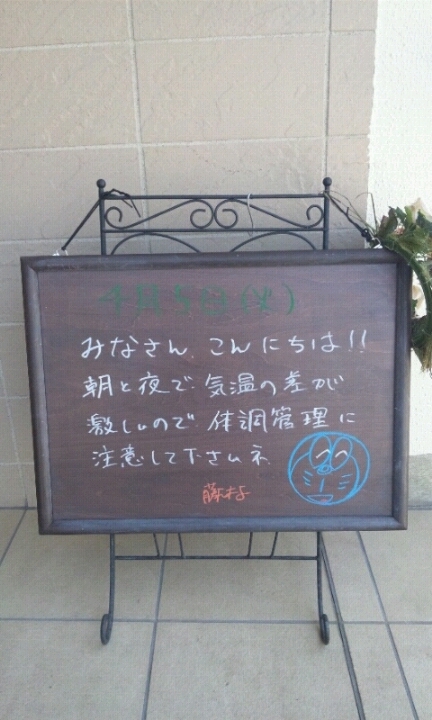 4月5日(火)
みなさん、こんにちは!!
朝と夜で気温の差が
激しいので体調管理に
注意して下さいネ
藤村